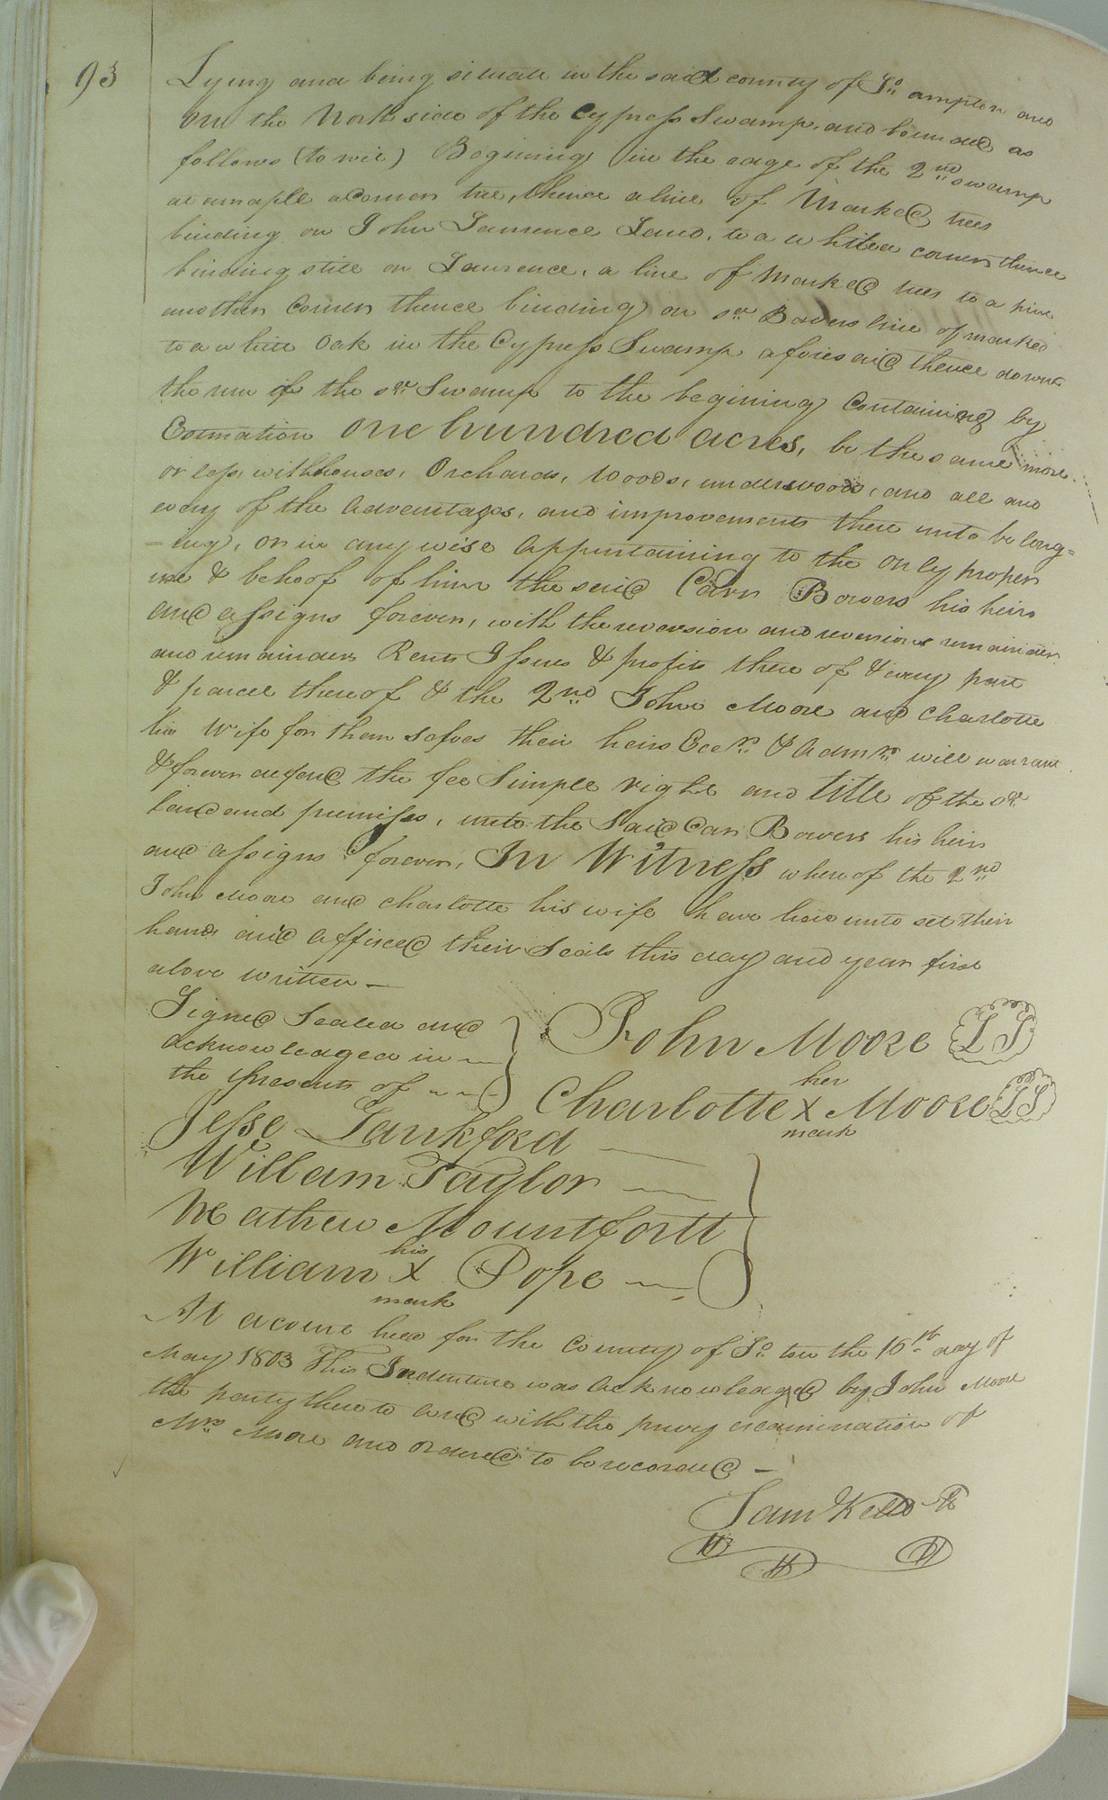 93
Lying and being situate in the said county of So. ampton and
on the North side of the Cypress Swamp, and bounded as
follows (to wit) Begining in the edge of the 2nd swamp
at a maple a Corner tree, thence a line of Marked trees
binding on John Laurence Land, to a white a corner thence
binding still on Laurence, a line of Marked trees to a pine
another Corner thence binding on sd. Bowers line of marked
to a white Oak in the Cypress Swamp aforesaid thence down
the run of the sd. Swamp to the begining Containing by
Estimation one hundred acres, be the same more
or less, with houses, Orchards, Woods, underwoods, and all and
every of the Adventages, and improvements there unto belong=
-ing, or in any wise Appurtaining to the only proper
use & behoof of him the said Carr Bowers his heirs
and assigns forever, with the reversion and reversions remainder
and remainders Rents Issues & profits there of & every part
& parcel there of & the 2nd John Moore and Charlotte
his Wife for them selves their heirs Exrs. & Admrs. will warrant
& forever defend the fee Simple right and title of the sd.
land and premises, unto the Said Carr Bowers his heirs
and assigns forever, In Witness where of the 2nd
John Moore and Charlotte his wife have here unto set their
hands and affixed their Seals this day and year first
above written —
Signed Sealed and
acknowledged in —
the presents of ~ ~
John Moore LS
Charlotte her X mark Moore LS
Jesse Lankford
William Taylor
Mathew Mountfortt
William his X mark Pope
At a court held for the County of So. ton the 16th day of
May 1803 This Indenture was Acknowledged by John Moore
the party there to and with the privy examination of
Mrs. Moore and ordered to be recorded —
Sam Kello